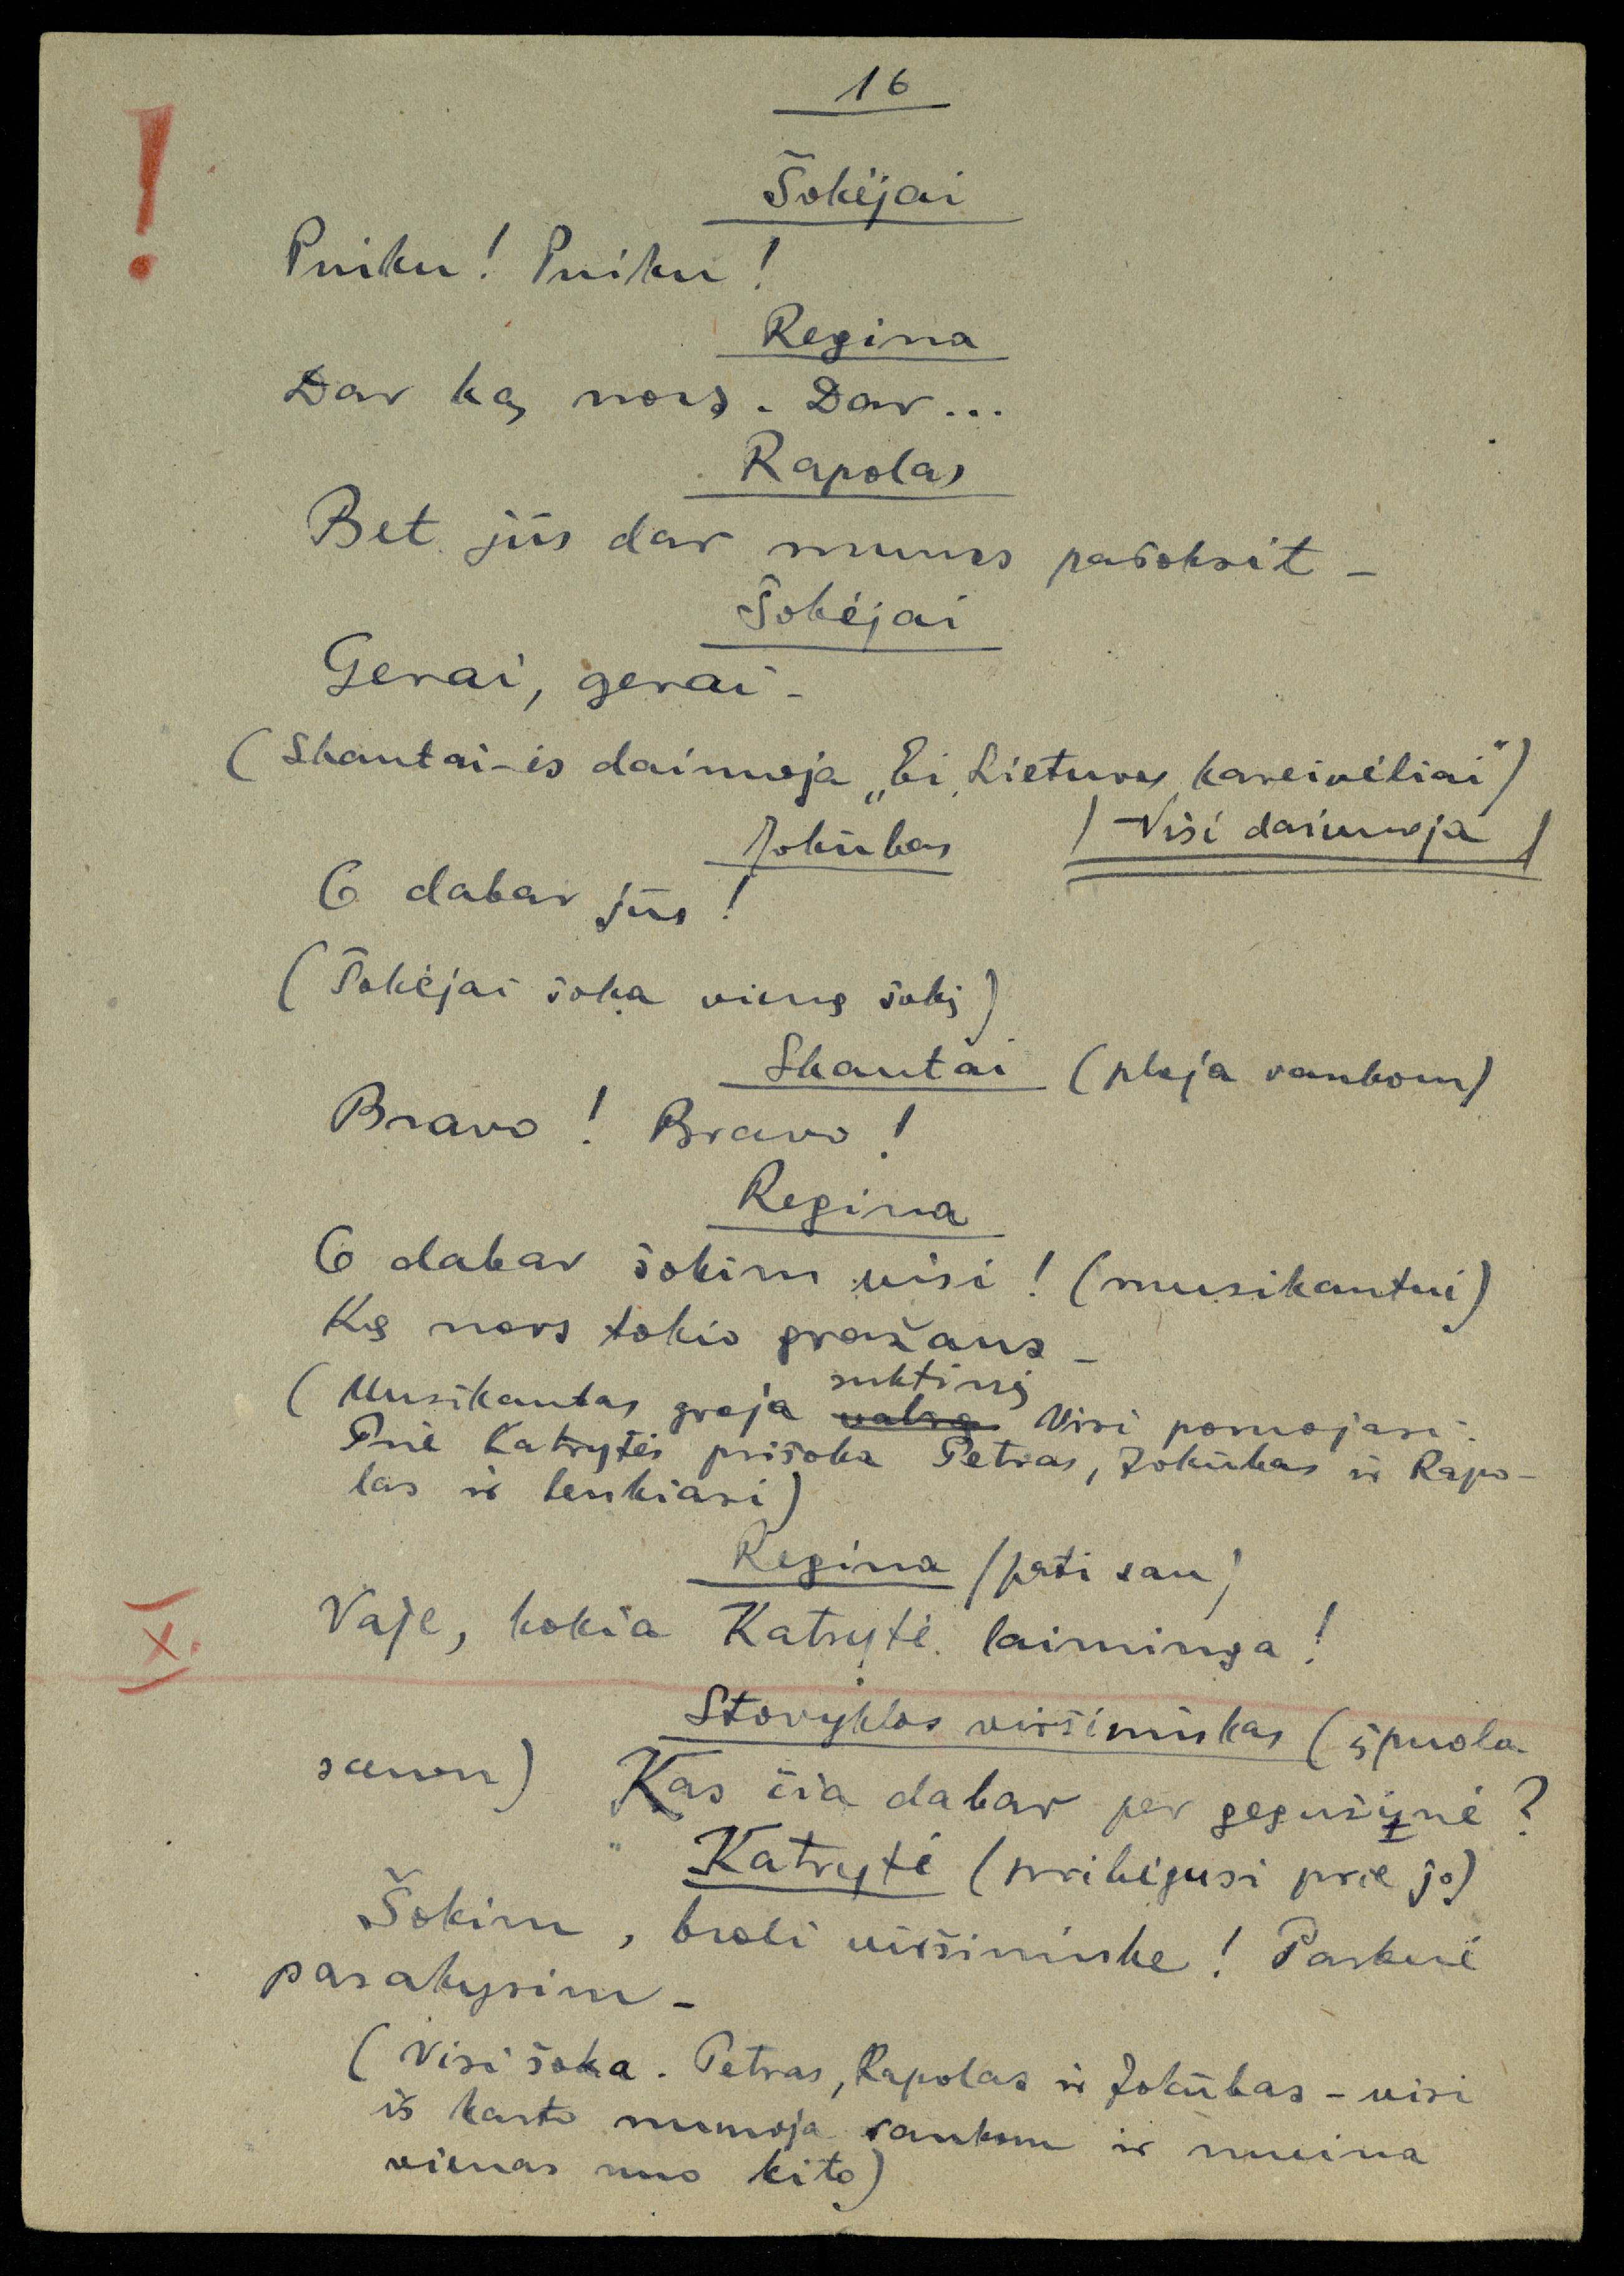 16
Šokėjai
Puiku! Puiku!
Regina
Dar ką nors. Dar...
Rapolas
Bet jūs dar mums pašoksit –
Šokėjai
Gerai, gerai –
(Skautai-ės dainuoja „Ei, Lietuvos kareivėliai")
Jokūbas / Visi dainuoja /
O dabar jūs!
(Šokėjai šoka vieną šokį)
Skautai (ploja rankom)
Bravo! Bravo!
Regina
O dabar šokim visi! (muzikantui)
Ką nors tokio gražaus –
suktinį
(Muzikantas groja valsą Visi poruojasi.
Prie Katrytės prišoka Petras, Jokūbas ir Rapo-
las ir lenkiasi)
Regina (pati sau)
Vaje, kokia Katrytė laiminga!
X.
Stovyklos viršininkas (įpuola
savon) Kas čia dabar per gegužynė?
Katrytė (pribėgusi prie jo)
Šokim, broli viršininke! Paskui
pasakysim –
(Visi šoka. Petras, Rapolas ir Jokūbas – visi
iš karto numoja rankom ir nueina
vienas nuo kito)